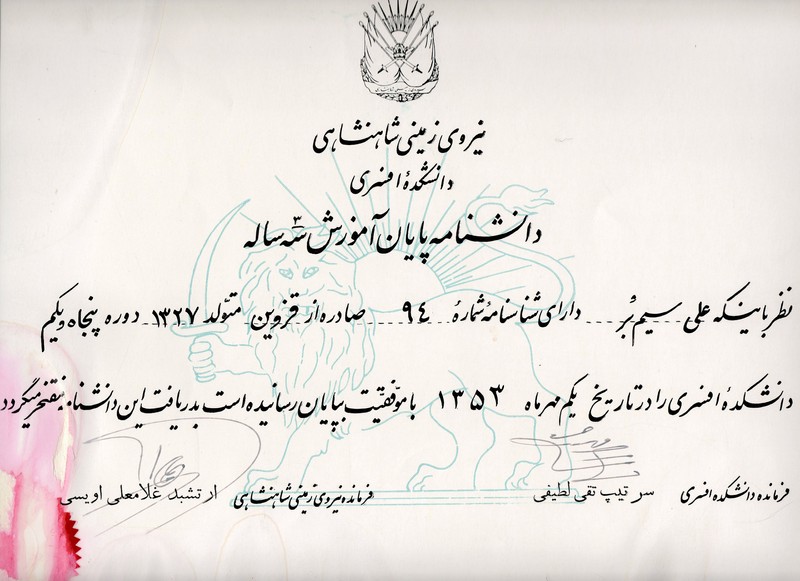 نیروی زمینی شاهنشاهی
دانشکدهٔ افسری
دانشنامه پایان آموزش سه ساله
نظر باینکه علی سیم‌بُر دارای شناسنامهٔ شمارهٔ ۹۴ صادره از قزوین متولد ۱۳۲۷ دوره پنجاه ویکم
دانشکدهٔ افسری را در تاریخ یکم مهرماه ۱۳۵۳ با موفقیّت بپایان رسانیده است بدریافت این دانشنامه مفتخر میگردد
فرمانده دانشکده افسری سرتیپ تقی لطیفی فرمانده نیروی زمینی شاهنشاهی ارتشبد غلامعلی اویسی